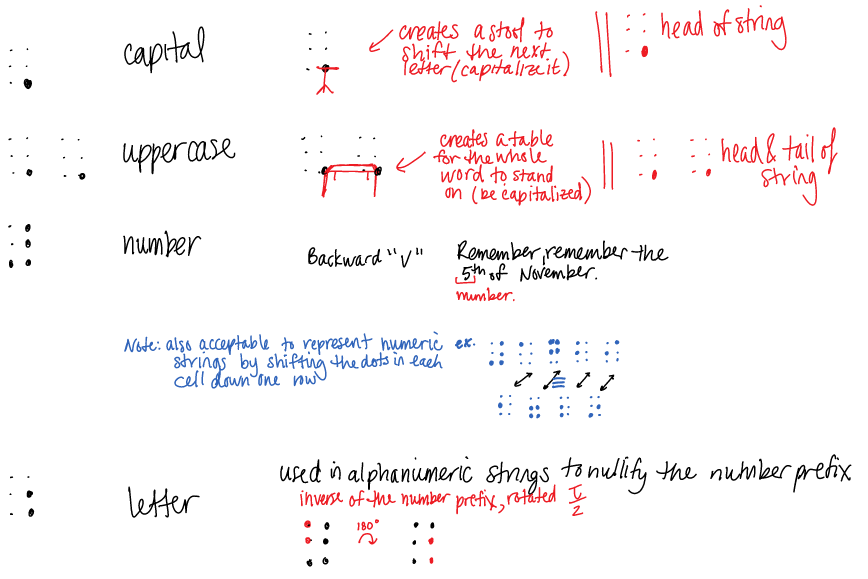 capital
creates a stool to
shift the next
letter (capitalize it)
head of string
uppercase
creates a table
for the whole
word to stand
on (be capitalized)
head & tail of
string
number
Backward "V"
Remember, remember the
5th of November.
number.
Note: also acceptable to represent numeric
strings by shifting the dots in each
cell down one row
ex.
letter
used in alphanumeric strings to nullify the number prefix
inverse of the number prefix, rotated π/2
180°